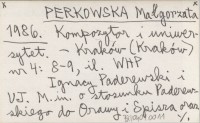 PERKOWSKA Małgorzata
1986. Kompozytor i uniwer-
sytet. – Kraków (Kraków)
nr 4: 8-9, il. WHP
Ignacy Paderewski i
UJ. M.in. o stosunku Paderew-
skiego do Orawy i Spisza oraz
%